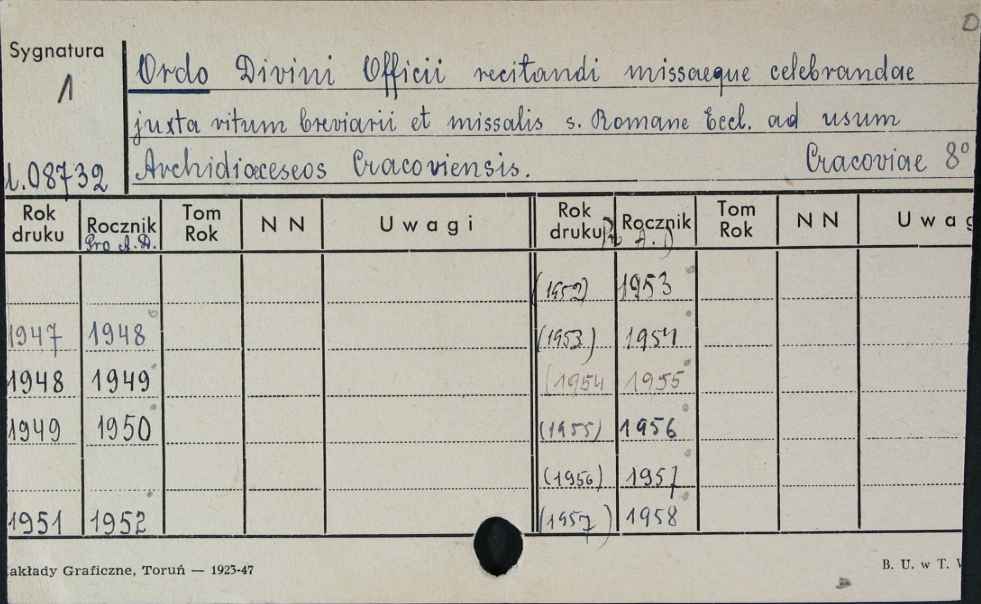 D
Sygnatura
1
Ordo Divini Officii recitandi missaeque celebrandae
juxta ritum breviarii et missalis s. Romane Eccl. ad usum
08732 Archidiœceseos Cracoviensis. Cracoviae 8°
Rok druku Rocznik Tom Rok NN Uwagi Rok druku Rocznik Tom Rok NN Uwag
Pro A.D. A. D
(1952) 1953
1947 1948 (1953) 1954
1948 1949 (1954 1955
1949 1950 (1955) 1956
(1956) 1957
1951 1952 (1957) 1958
akłady Graficzne, Toruń — 1923-47 B. U. w T.